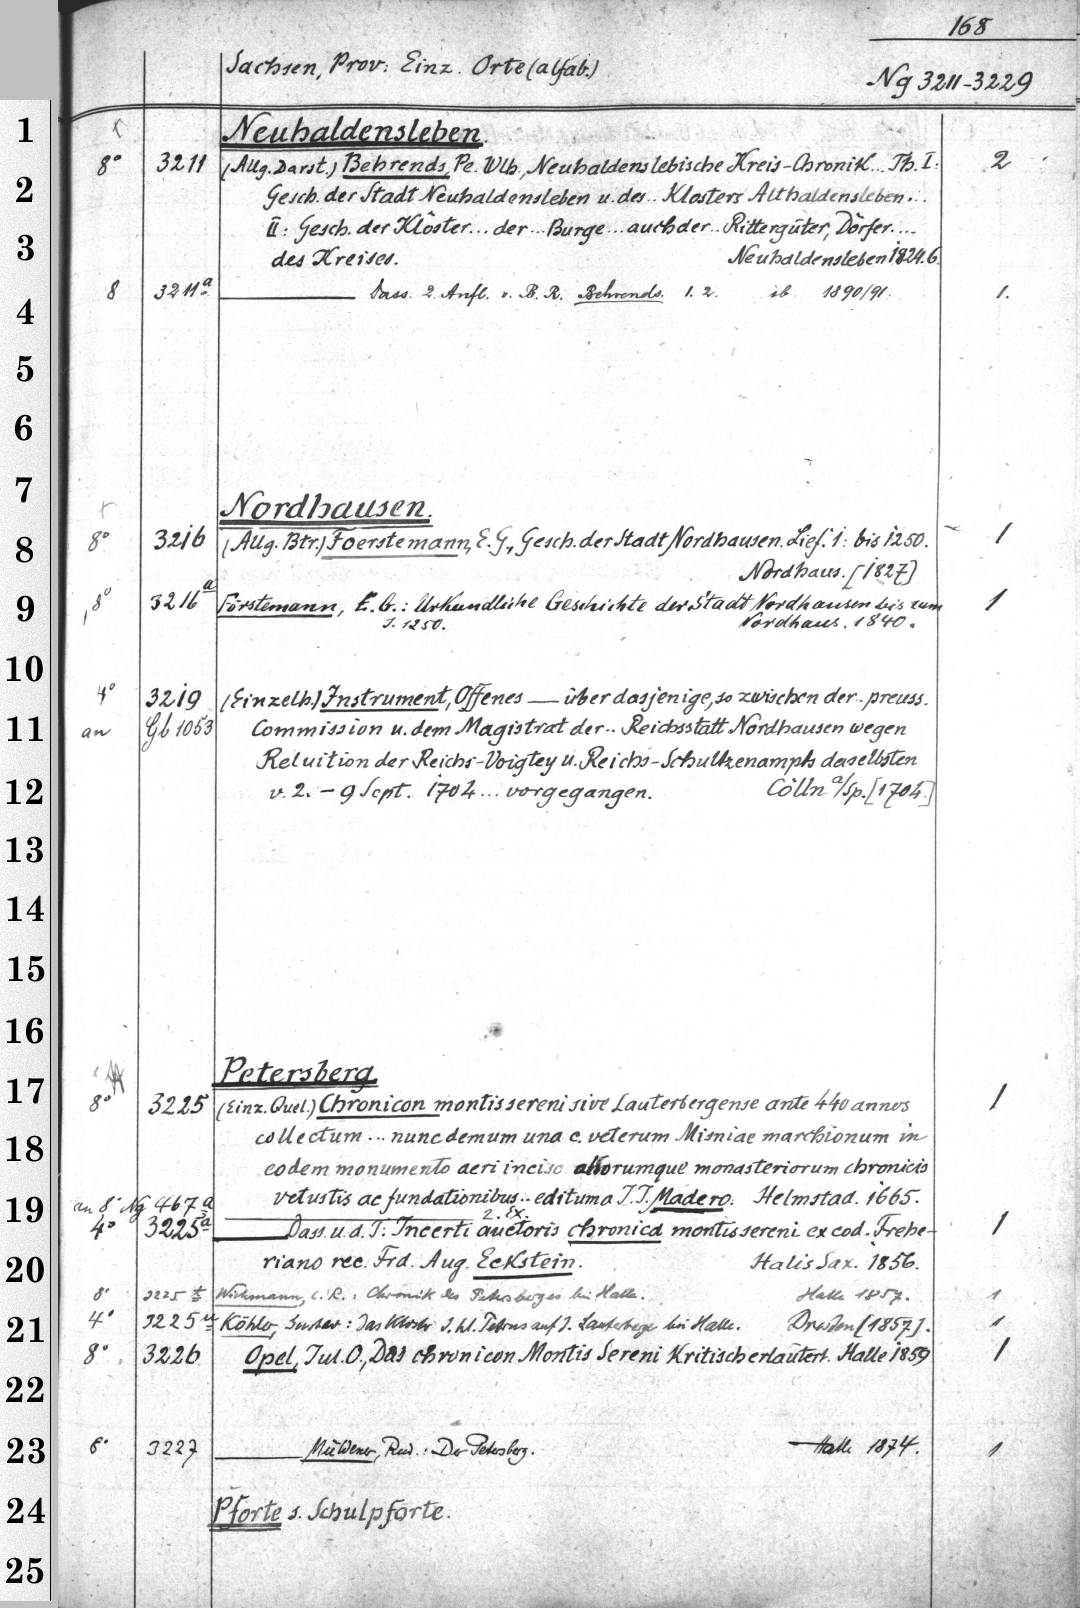 168
Sachsen, Prov: Einz. Orte (alfab.)
Ng 3211-3229
1 Neuhaldensleben.
8° 3211 (Allg. Darst.) Behrends, Pe. Wlh., Neuhaldenslebische Kreis-Chronik... Th. I: 2
2 Gesch. der Stadt Neuhaldensleben u. des.. Klosters Althaldensleben...
3 II: Gesch. der Klöster... der... Burge... auch der.. Rittergüter, Dörfer....
des Kreises. Neuhaldensleben 1824.6.
8 3211a Dass. 2. Aufl. v. B. R. Behrends. 1. 2. ib 1890/91. 1.
4
5
6
7 Nordhausen.
8 8° 3216 (Allg. Btr.) Foerstemann, E. G., Gesch. der Stadt Nordhausen. Lief. 1: bis 1250. 1
Nordhaus. [1827]
9 8° 3216a Förstemann, E. G.: Urkundliche Geschichte der Stadt Nordhausen bis zum 1
J. 1250. Nordhaus. 1840.
10
4° 3219 (Einzelh.) Instrument, Offenes — über dasjenige, so zwischen der.. preuss.
11 an Gb 1053 Commission u. dem Magistrat der.. Reichsstatt Nordhausen wegen
Reluition der Reichs-Voigtey u. Reichs-Schultzenampts daselbsten
12 v. 2. - 9 Sept. 1704... vorgegangen. Cölln a/Sp. [1704.]
13
14
15
16
17 Petersberg
8° 3225 (Einz. Quel.) Chronicon montis sereni sive Lauterbergense ante 440 annos 1
18 collectum... nunc demum una c. veterum Misniae marchionum in
eodem monumento aeri inciso aliorumque monasteriorum chronicis
19 an 8° Ng 467a vetustis ac fundationibus.. edituma J. J. Madero. Helmstad. 1665.
2. Ex.
4° 3225a Dass. u. d. T: Incerti auctoris chronica montis sereni ex cod. Frehe- 1
20 riano rec. Frd. Aug. Eckstein. Halis Sax. 1856.
8° 3225 t Wichmann, C. R.: Chronik des Petersberges bei Halle. Halle 1857. 1
21 4° 3225 u Köhler, Gustav: Das Kloster d. hl. Petrus auf d. Lauterberge bei Halle. Dresden [1857]. 1
8° 3226 Opel, Jul. O., Das chronicon Montis Sereni Kritisch erläutert. Halle 1859 1
22
23 8° 3227 Müldener, Rud.: Der Petersberg. Halle 1874. 1
24 Pforte s. Schulpforte.
25